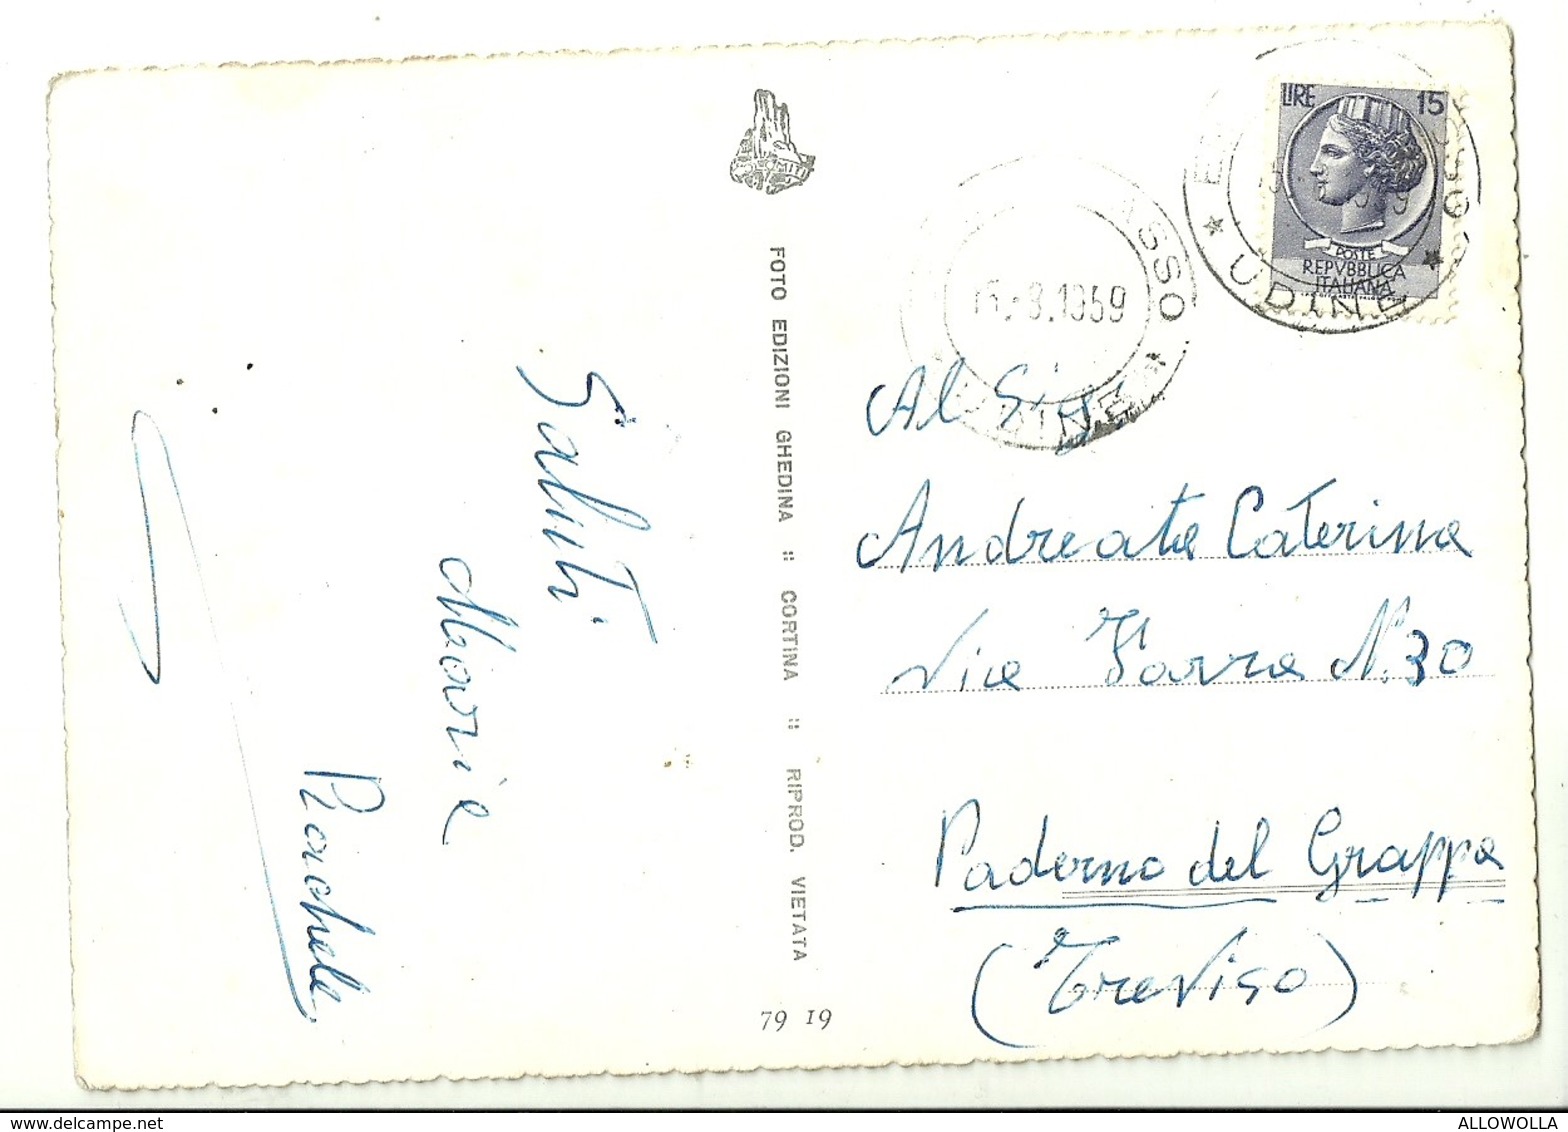 LIRE 15
POSTE
REPVBBLICA
ITALIANA
UDINE
ASSO
8.1959
UDINE
DOLOMITI
FOTO EDIZIONI GHEDINA :: CORTINA :: RIPROD. VIETATA
79 19
Saluti
Maria
Rachele
Al Sig
Andreata Caterina
Via Farra N. 30
Paderno del Grappa
(Treviso)
www.delcampe.net
ALLOWOLLA